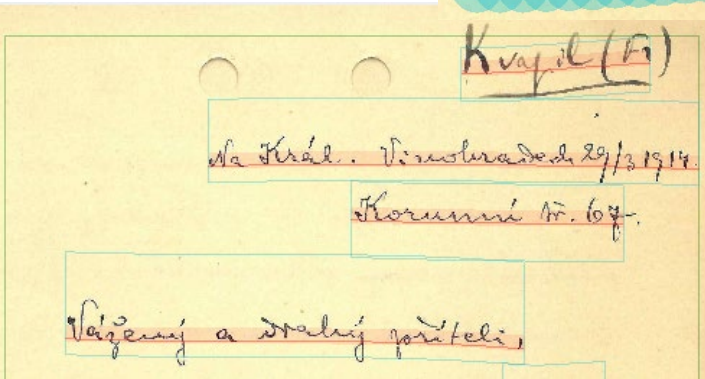 Kvapil (Fr)
Na Král. Vinohradech 29/3 1917.
Korunní tř. 67.
Vážený a drahý příteli,